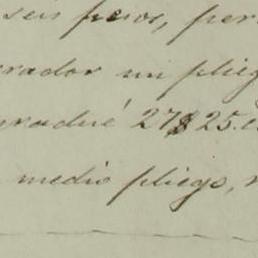 seis pesos, per
rador un plieg
gradué 27$25.c
medio pliego,